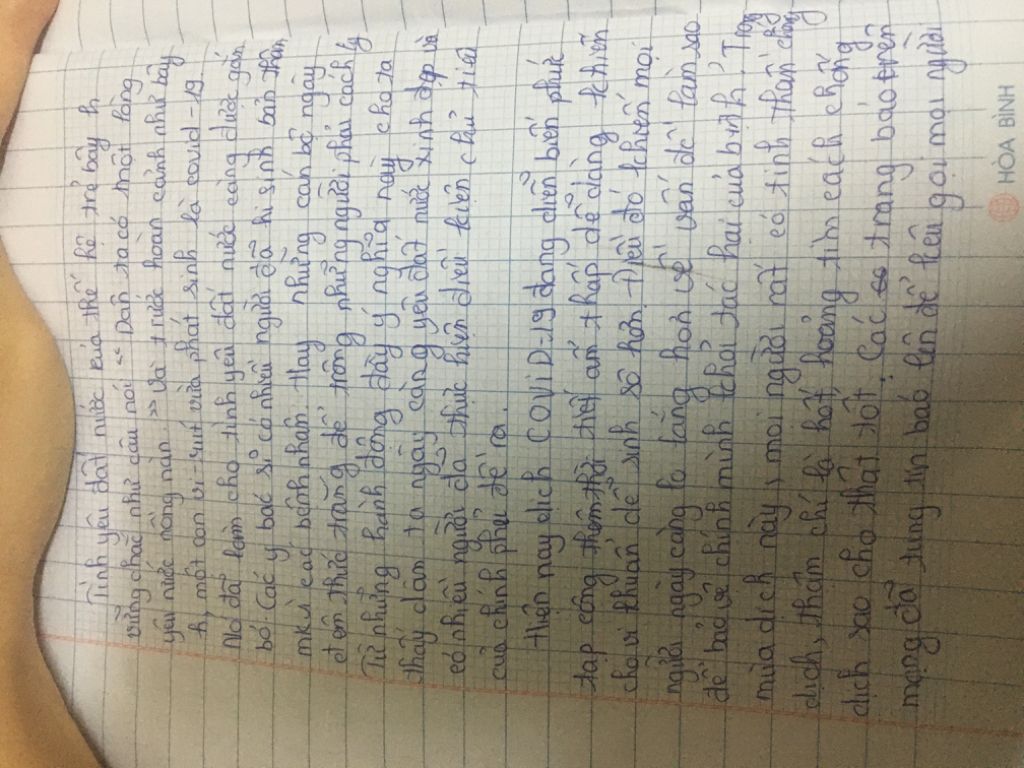 Tình yêu đất nước của thế hệ trẻ bây h
vững chắc như câu nói "Dân ta có một lòng
yêu nước nồng nàn" Và trước hoàn cảnh như bây
h, một con vi-rút vừa phát sinh là covid-19
Nó đã làm cho tình yêu đất nước càng được gắn
bó. Các y bác sĩ có nhiều người đã hi sinh bản thân
các bệnh nhân. Hay những cán bộ ngày
đêm thức trắng để trông những người phải cách ly
Từ những hành động đầy ý nghĩa này cho ta
thấy dan ta ngày càng yêu đất nước xinh đẹp và
có nhiều người đã thực hiện điều kiện chỉ tiêu
của chính phủ đề ra.
Hiện nay dịch COViD-19 đang diễn biến phức
tạp cộng thêm thời tiết ẩm thấp dễ dàng khiến
cho vi khuẩn dễ sinh sô hơn. Điều đó khiến mọi
người ngày càng lo lắng hơn về vấn đề làm sao
để bảo vệ chính mình khỏi tác hại của bệnh. Trong
mùa dịch này, mọi người rất có tinh thần chống
dịch, thậm chí là hốt hoảng tìm cách chống
dịch sao cho thật tốt. Các trang báo trên
mạng đã tung tin báo lên để kêu gọi mọi người
HÒA BÌNH